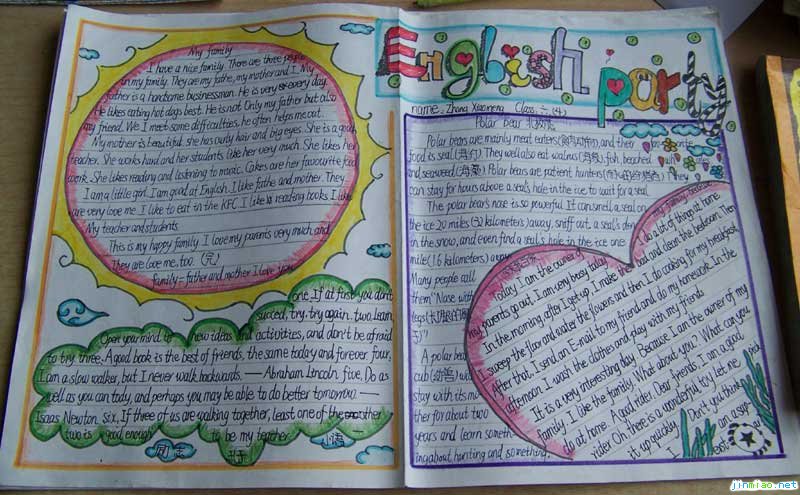 My family
I have a nice family. There are three people
in my family. They are my fathe, my mother and I. My
father is a handsome businessman. He is very every day.
He likes eating hot dogs best. He is not Only my father but also
my friend. We I meet some difficulties, he often helps me out.
My mother is beautiful, she has curly hair and big eyes. She is a good
teacher. She works hard and her students like her very much. She likes
work. She likes reading and listening to music. Cakes are her favourite food
I am a little girl. I am good at English. I like fathe and mother. They
are very love me. I like to eat in the KFC. I like reading books. I like
My teacher and students.
This is my happy family. I love my parents very much, and
They are love me, too. (完)
Family = father and mother I love you
one, If at fast you don't
succed, try, try again. two. learn,
Open your mind to new ideas and activities, and don't be afraid
to try. three. A good book is the best of friends, the same today and forever. four,
I am a slow walker, but I never walk backwards. — Abraham Lincoln. five, Do as
well as you can tody, and perhaps you may be able to do better tomorrow. —
Isaas Newton. six. If three of us are walking together, least one of the other
two is good enough to be my teacher
English party
name: Zhang Class: 六(4)
Polar bear 北极熊
Polar bears are mainly meat eaters, and their
food is seal They well also eat walrus fish, beached
and seaweed Polar bears are patient hunters They
can stay for hours above a seal's hole in the ice to wait for a seal.
The polar bear's nose is so powerful. It can smell a seal on
the ice 20 miles (32 kilometers) away, sniff out, a seal's den
in the snow, and even find a seal's hole in the ice one
mile (1.6 kilometers) away
Many people call
them "Nose with
legs
A polar bear
cub
stay with its mo
ther for about two
years and learn someth-
ing about hunting and something.
Today I am the owner of
my family, because
my parents go out. I am very busy today.
I do a lot of things at home.
In the morning, after I get up, I make the bed and clean the bedroom. Then
I sweep the floor and water the flowers and then I do cooking for my breakfast.
After that, I send an E-mail to my friend and do my homework. In the
afternoon, I wash the clothes and play with my friends.
It is a very interesting day. Because I am the owner of my
family. I like the family. What about you? What can you
do at home. A good rider. Dear friends, I am a good
rider. Oh, there is a wonderful toy! let me
it up quickly. Don't you think
jinmiao.net